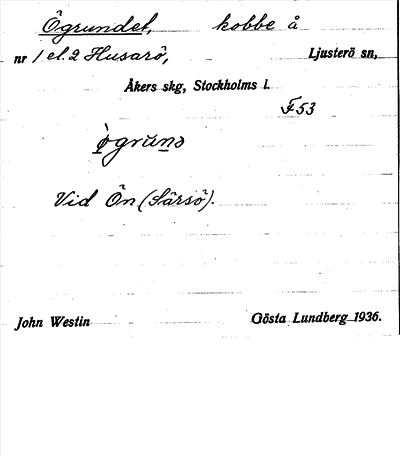 Ögrundet, kobbe å
nr 1 el. 2 Husarö, Ljusterö sn,
Åkers skg, Stockholms l.
F 53
Vid Ön (Särsö).
John Westin Gösta Lundberg 1936.